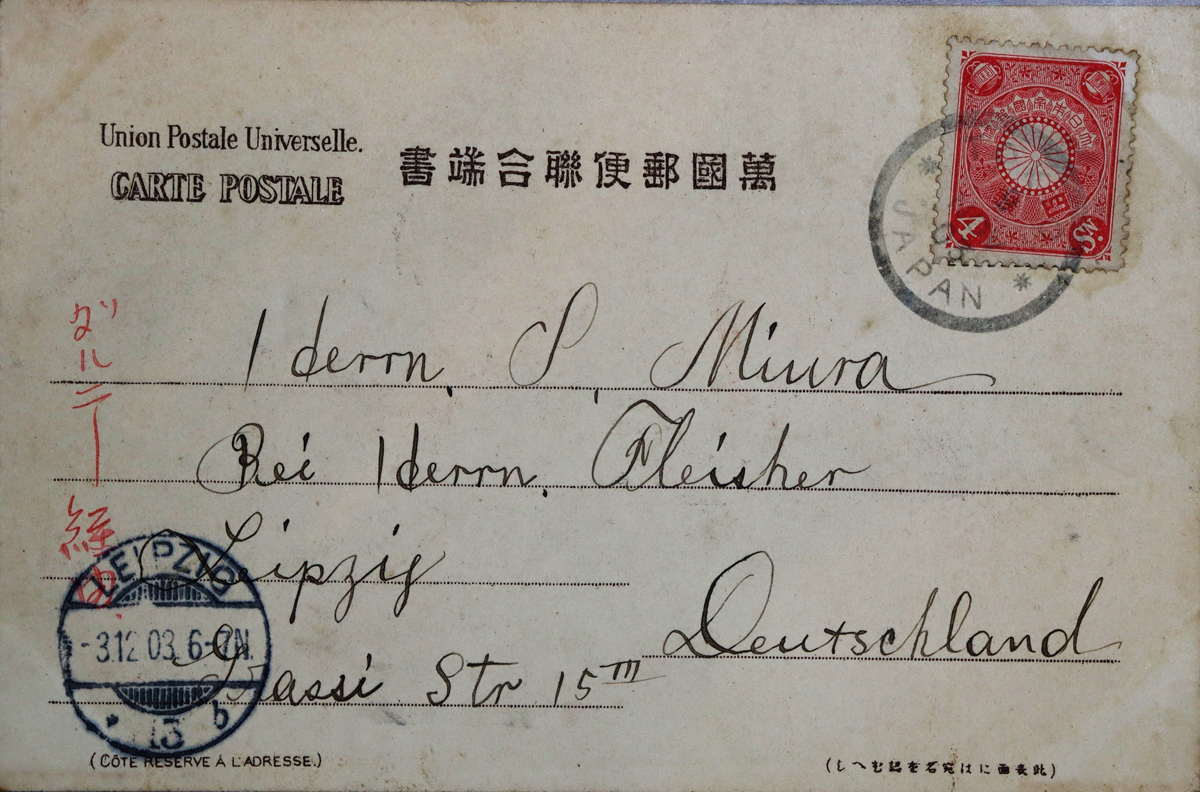 Union Postale Universelle.
CARTE POSTALE
書端合聯便郵國萬
4 Sn.
JAPAN
Herrn, S, Miura
Bei Herrn. Fleisher
Leipzig
Deutschland
Grassi Str 15 III
ダルニー経由
LEIPZIG
-3.12 03. 6-7N.
* 13 b
(CÔTÉ RÉSERVÉ À L'ADRESSE.)
(此表面には宛名を認むへし)